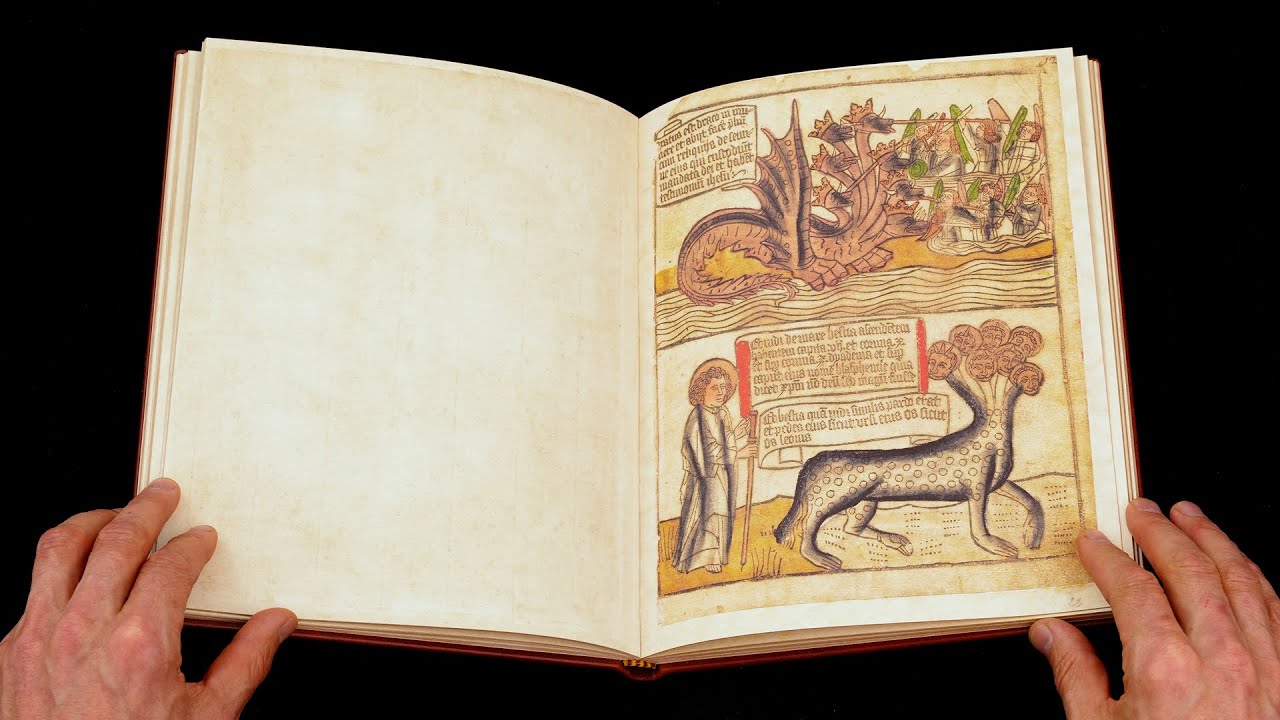 est draco in mu
liere et abijt face pliū
cum reliquis de semi
ne eius qui custodiūt
mandata dei et habēt
testimoniū ihesu
Et uidi de mare bestia ascendētem
habentem capita et cornua
et sup cornua dyadema et sup
capita eius nomē blasphemie quis
dicet xpm
Et bestia quā uidi similis pardo erat
et pedes eius sicut ursi eius os sicut
os leonis